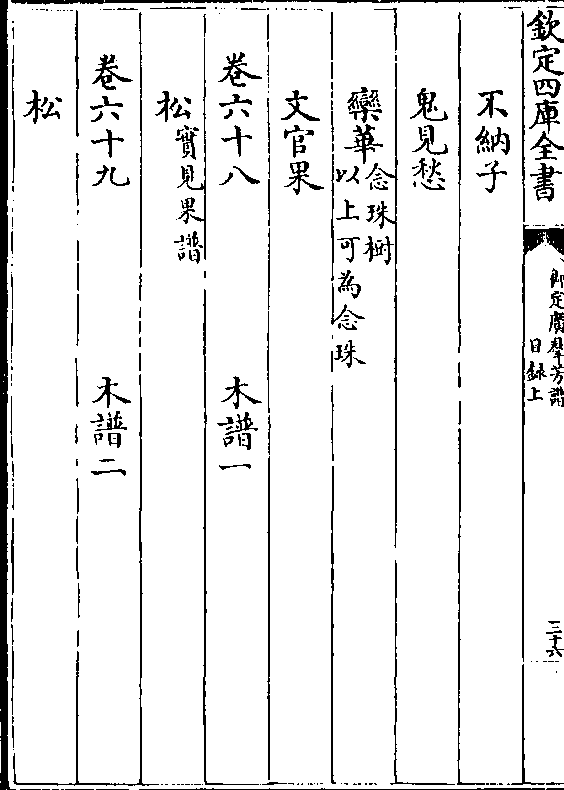 欽定四庫全書
御定廣羣芳譜
目錄上
三十六
不納子
鬼見愁
欒華念珠樹
以上可為念珠
文官果
卷六十八 木譜一
松實見果譜
卷六十九 木譜二
松